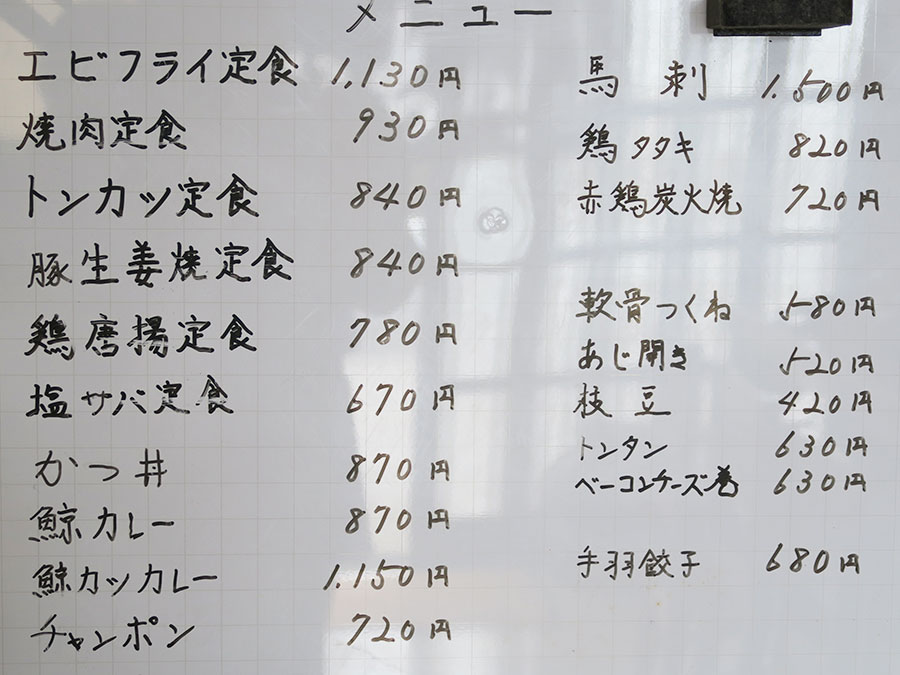 メニュー
エビフライ定食 1,130円
焼肉定食 930円
トンカツ定食 840円
豚生姜焼定食 840円
鶏唐揚定食 780円
塩サバ定食 670円
かつ丼 870円
鯨カレー 870円
鯨カツカレー 1.150円
チャンポン 720円
馬刺 1.500円
鶏タタキ 820円
赤鶏炭火焼 720円
軟骨つくね 580円
あじ開き 520円
枝豆 420円
トンタン 630円
ベーコンチーズ巻 630円
手羽餃子 680円